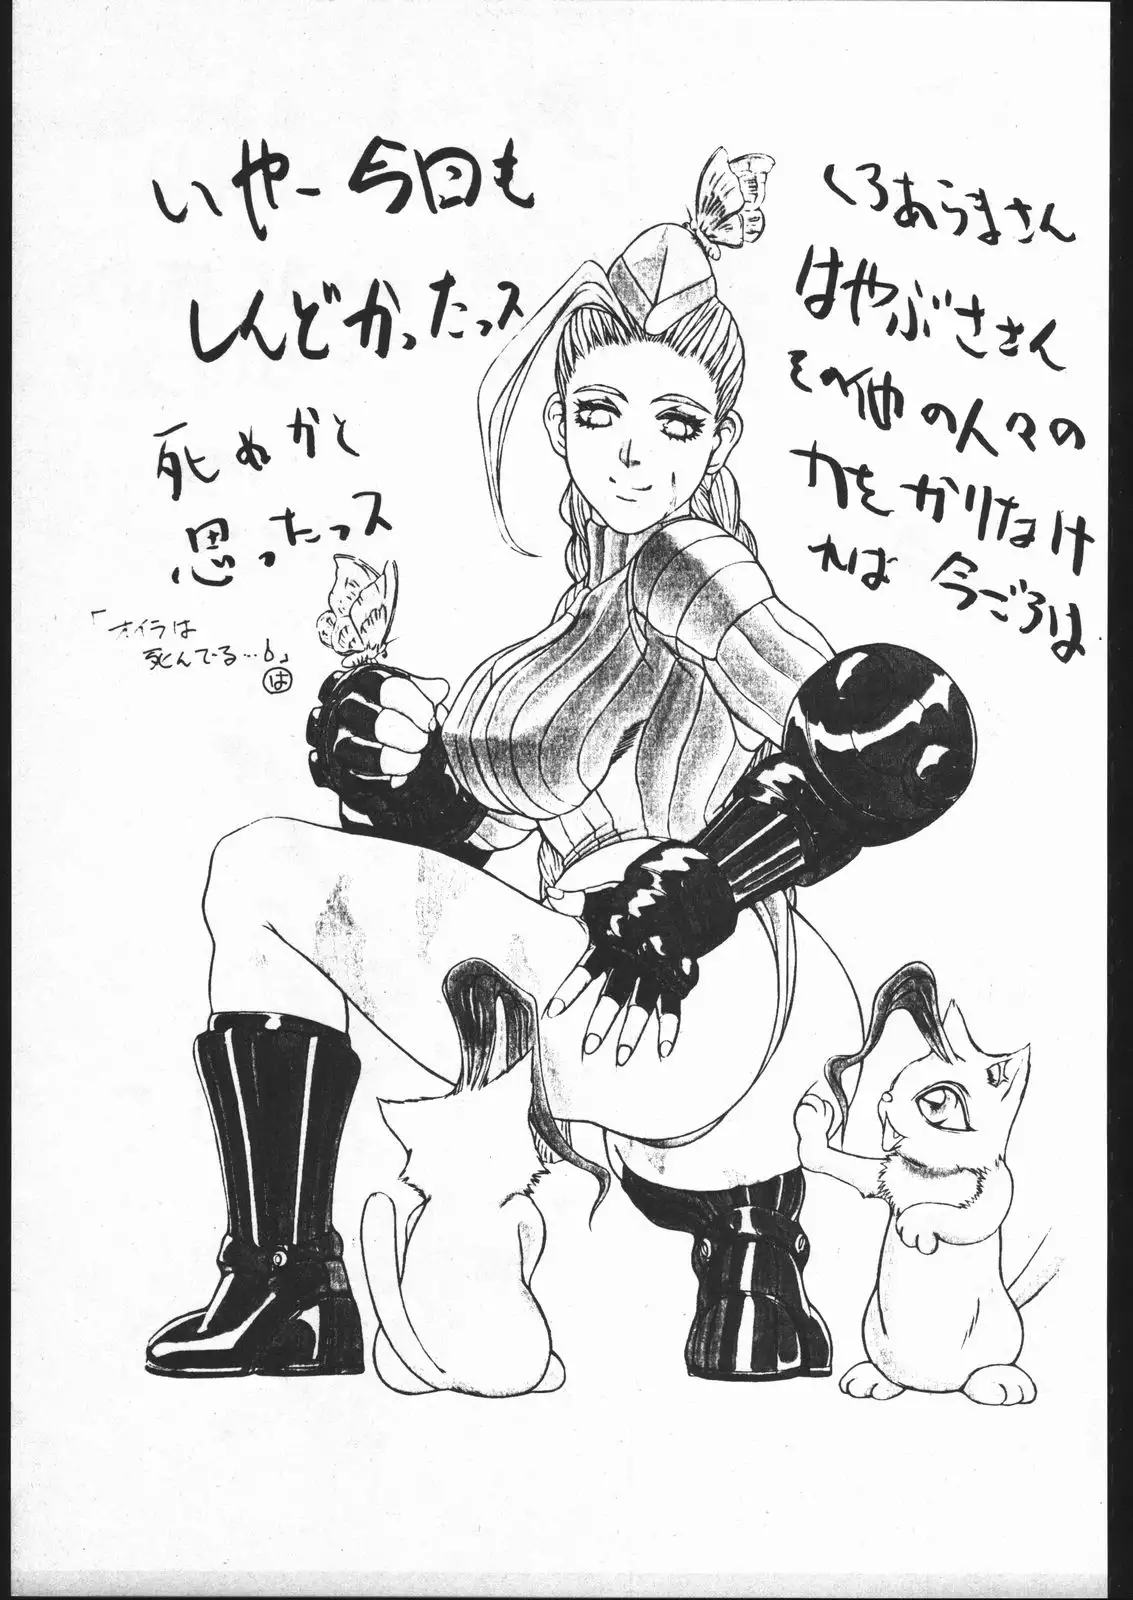 いやー今回も
しんどかったっス
死ぬかと
思ったっス
「オイラは
死んでる…b」
は
くろあらまさん
はやぶささん
その他の人々の
力をかりなけ
れば今ごろは